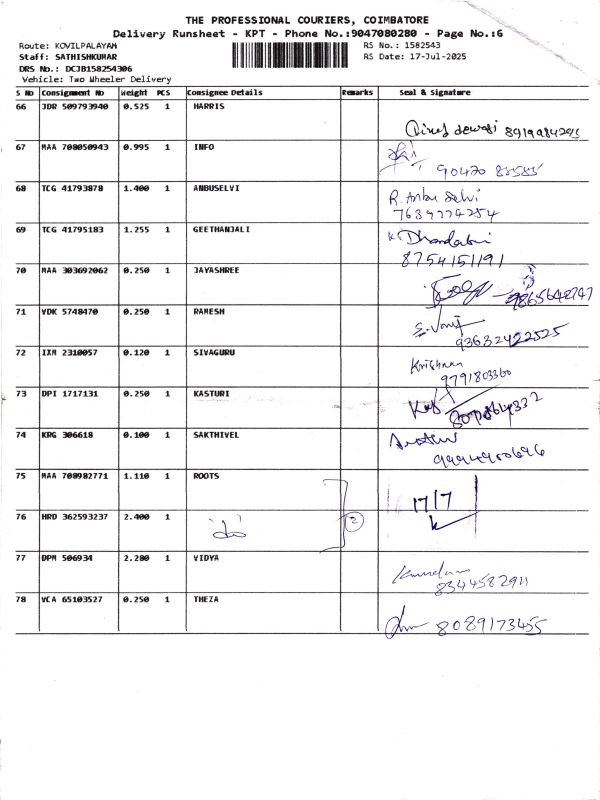 THE PROFESSIONAL COURIERS, COIMBATORE
Delivery Runsheet - KPT - Phone No.:9047080280 - Page No.:6
Route: KOVILPALAYAM
RS No.: 1582543
Staff: SATHISHKUMAR
RS Date: 17-Jul-2025
DRS No.: DCJB158254306
Vehicle: Two Wheeler Delivery
S No Consignment No Weight PCS Consignee Details Remarks Seal & signature
66 JDR 509793940 0.525 1 HARRIS
67 MAA 708050943 0.995 1 INFO
68 TCG 41793878 1.400 1 ANBUSELVI R. Anbu Selvi
7639774254
69 TCG 41795183 1.255 1 GEETHANJALI
8754151191
70 MAA 303692062 0.250 1 JAYASHREE
9865642747
71 VDK 5748470 0.250 1 RAMESH
72 IXM 2310057 0.120 1 SIVAGURU Krishnan
9791803360
73 DPI 1717131 0.250 1 KASTURI
74 KRG 306618 0.100 1 SAKTHIVEL
9994980696
75 MAA 708982771 1.110 1 ROOTS 17/7
76 HRD 362593237 2.400 1 2
77 DPM 506934 2.280 1 VIDYA
8344582911
78 VCA 65103527 0.250 1 THEZA
8089173455